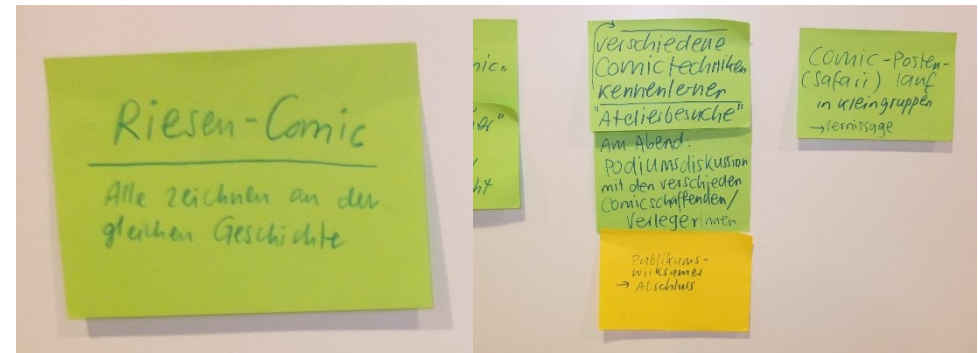 Riesen-Comic
Alle zeichnen an der
gleichen Geschichte
nic"
er"
ht
verschiedene
Comictechniken
kennenlernen
"Atelierbesuche"
Am Abend:
Podiumsdiskussion
mit den verschieden
Comicschaffenden/
VerlegerInnen
Publikums-
wirksamer
→ Abschluss
Comic-Posten-
(Safari) lauf
in Kleingruppen
→ Vernissage